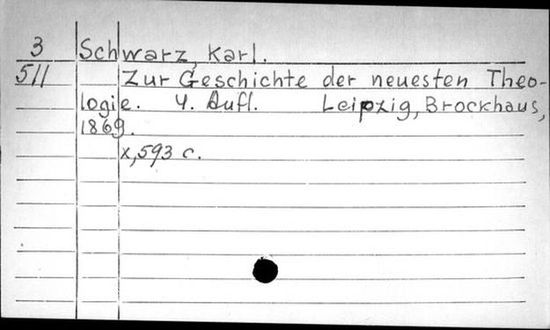 3 Schwarz, Karl.
511 Zur Geschichte der neuesten Theo-
logie. 4. Aufl. Leipzig, Brockhaus,
1869.
x, 593 c.